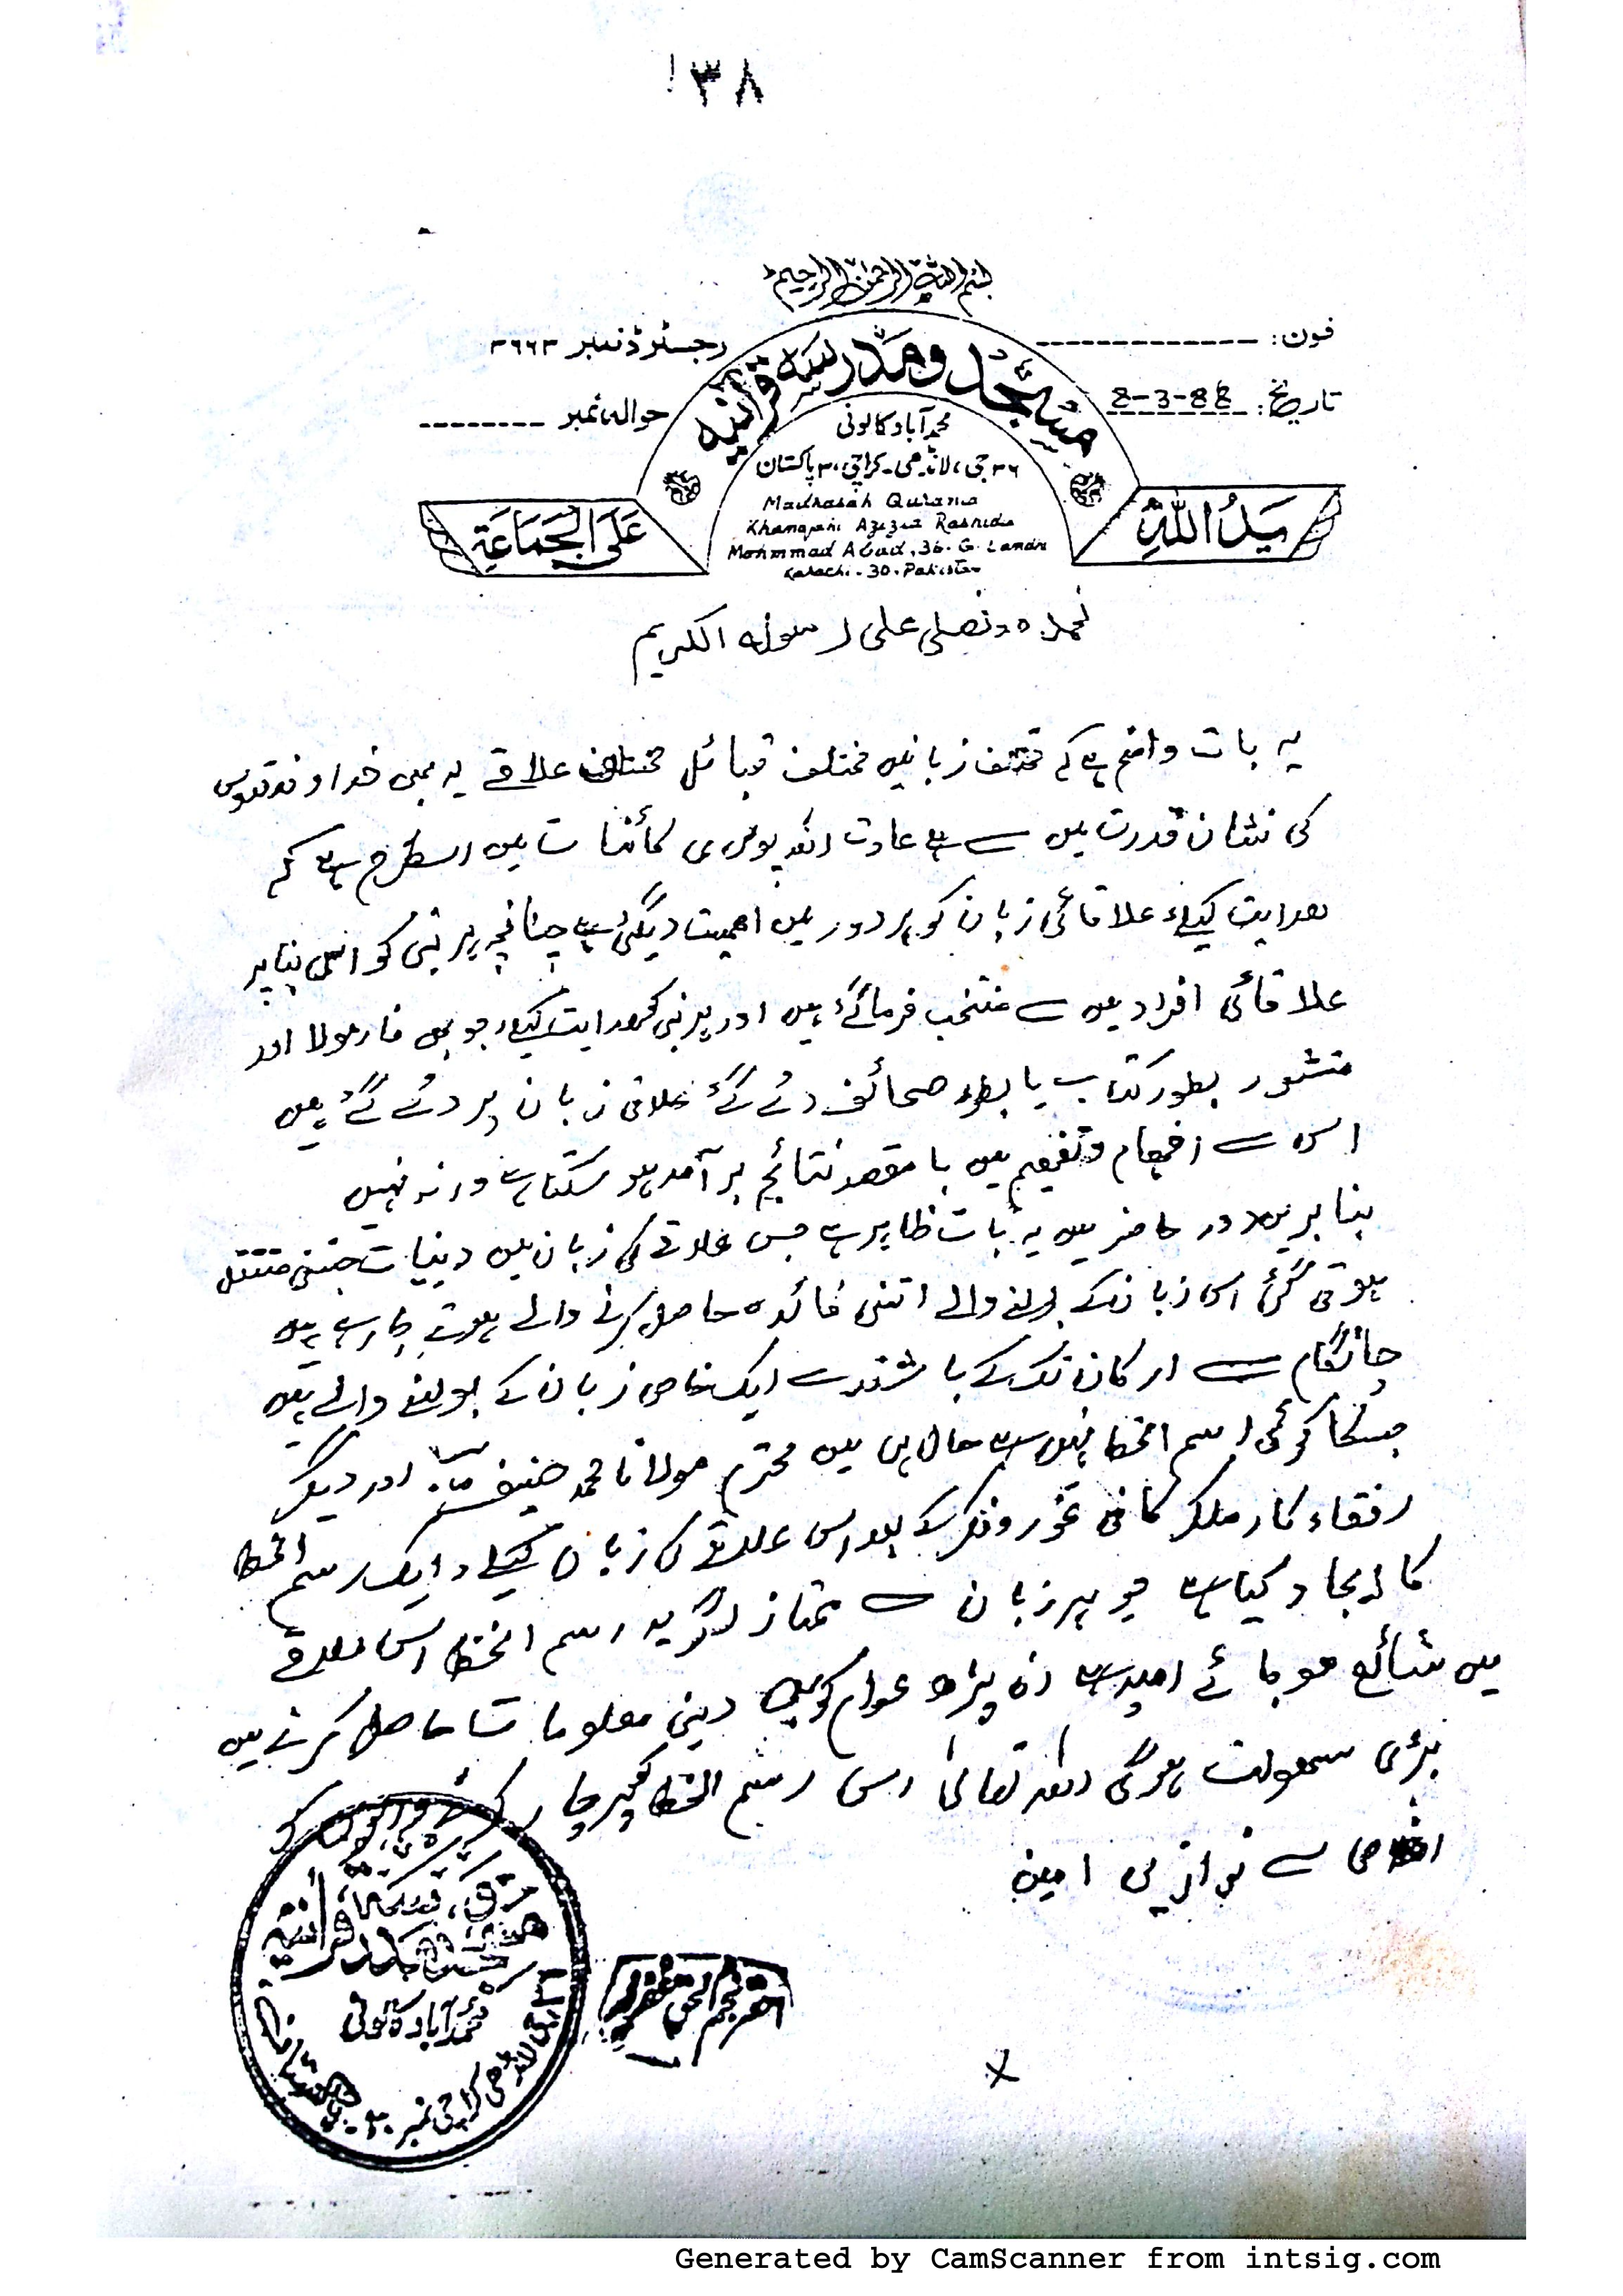 ۱۳۸
بسم اللہ الرحمٰن الرحیم
فون:
رجسٹرڈ نمبر ۳۶۶۳
تاریخ: 8-3-88
حوالہ نمبر
مسجد و مدرسہ قرآنیہ
محمد آباد کالونی
۳۶ جی، لانڈھی۔ کراچی ۳۰ پاکستان
Madrasah Qurania
Khanqahi Azizia Rashidia
Mohmmad Abad, 36. G. Landhi
Karachi-30. Pakistan
يَدُ اللّٰهِ
عَلَى الْجَمَاعَةِ
نحمدہ ونصلی علی رسولہ الکریم
یہ بات واضح ہے کہ مختلف زبانیں مختلف قبائل مختلف علاقے یہ بھی خداوند قدوس
کی نشان قدرت میں سے ہے عادت اللہ پوری کائنات میں اسطرح ہے کہ
ھدایت کیلئے علاقائی زبان کو ہر دور میں اھمیت دیگئی ہے چنانچہ ہر نبی کو اسی بنا پر
علاقائی افراد میں سے منتخب فرمائے گئے ہیں اور ہر نبی کو ہدایت کیلئے جو بھی فارمولا اور
منشور بطور کتاب یا بطور صحائف دئے گئے علاقی زبان پر دئے گئے ہیں
اس سے افہام وتفہیم میں با مقصد نتائج بر آمد ہو سکتا ہے ورنہ نہیں
بنا بریں دور حاضر میں یہ بات ظاہر ہے جس علاقے کی زبان میں دینیات جتنی منتقل
ہوتی گئی اس زبان کے بولنے والے اتنی فائدہ حاصل کرنے والے ہوتے جا رہے ہیں
چاٹگام سے ارکان تک کے باشندے ایک خاص زبان کے بولنے والے ہیں
جسکا کوئی رسم الخط نہیں ہے حال ہی میں محترم مولانا محمد حنیف اور دیگر
رفقاء کار ملکر کافی غور وفکر کے بعد اس علاقے کی زبان کیلئے ایک رسم الخط
کا ایجاد کیا ہے جو ہر زبان سے ممتاز اگر یہ رسم الخط اس علاقے
میں شائع ھو جائے امید ہے ان پڑھ عوام کو بھی دینی معلومات حاصل کرنے میں
بڑی سھولت ہوگی اللہ تعالیٰ اس رسم الخط کو
اخلاص سے نوازیں امین
احقر نجم الحق غفرلہ
مسجد و مدرسہ قرآنیہ
محمد آباد کالونی
لانڈھی کراچی نمبر ۳۰